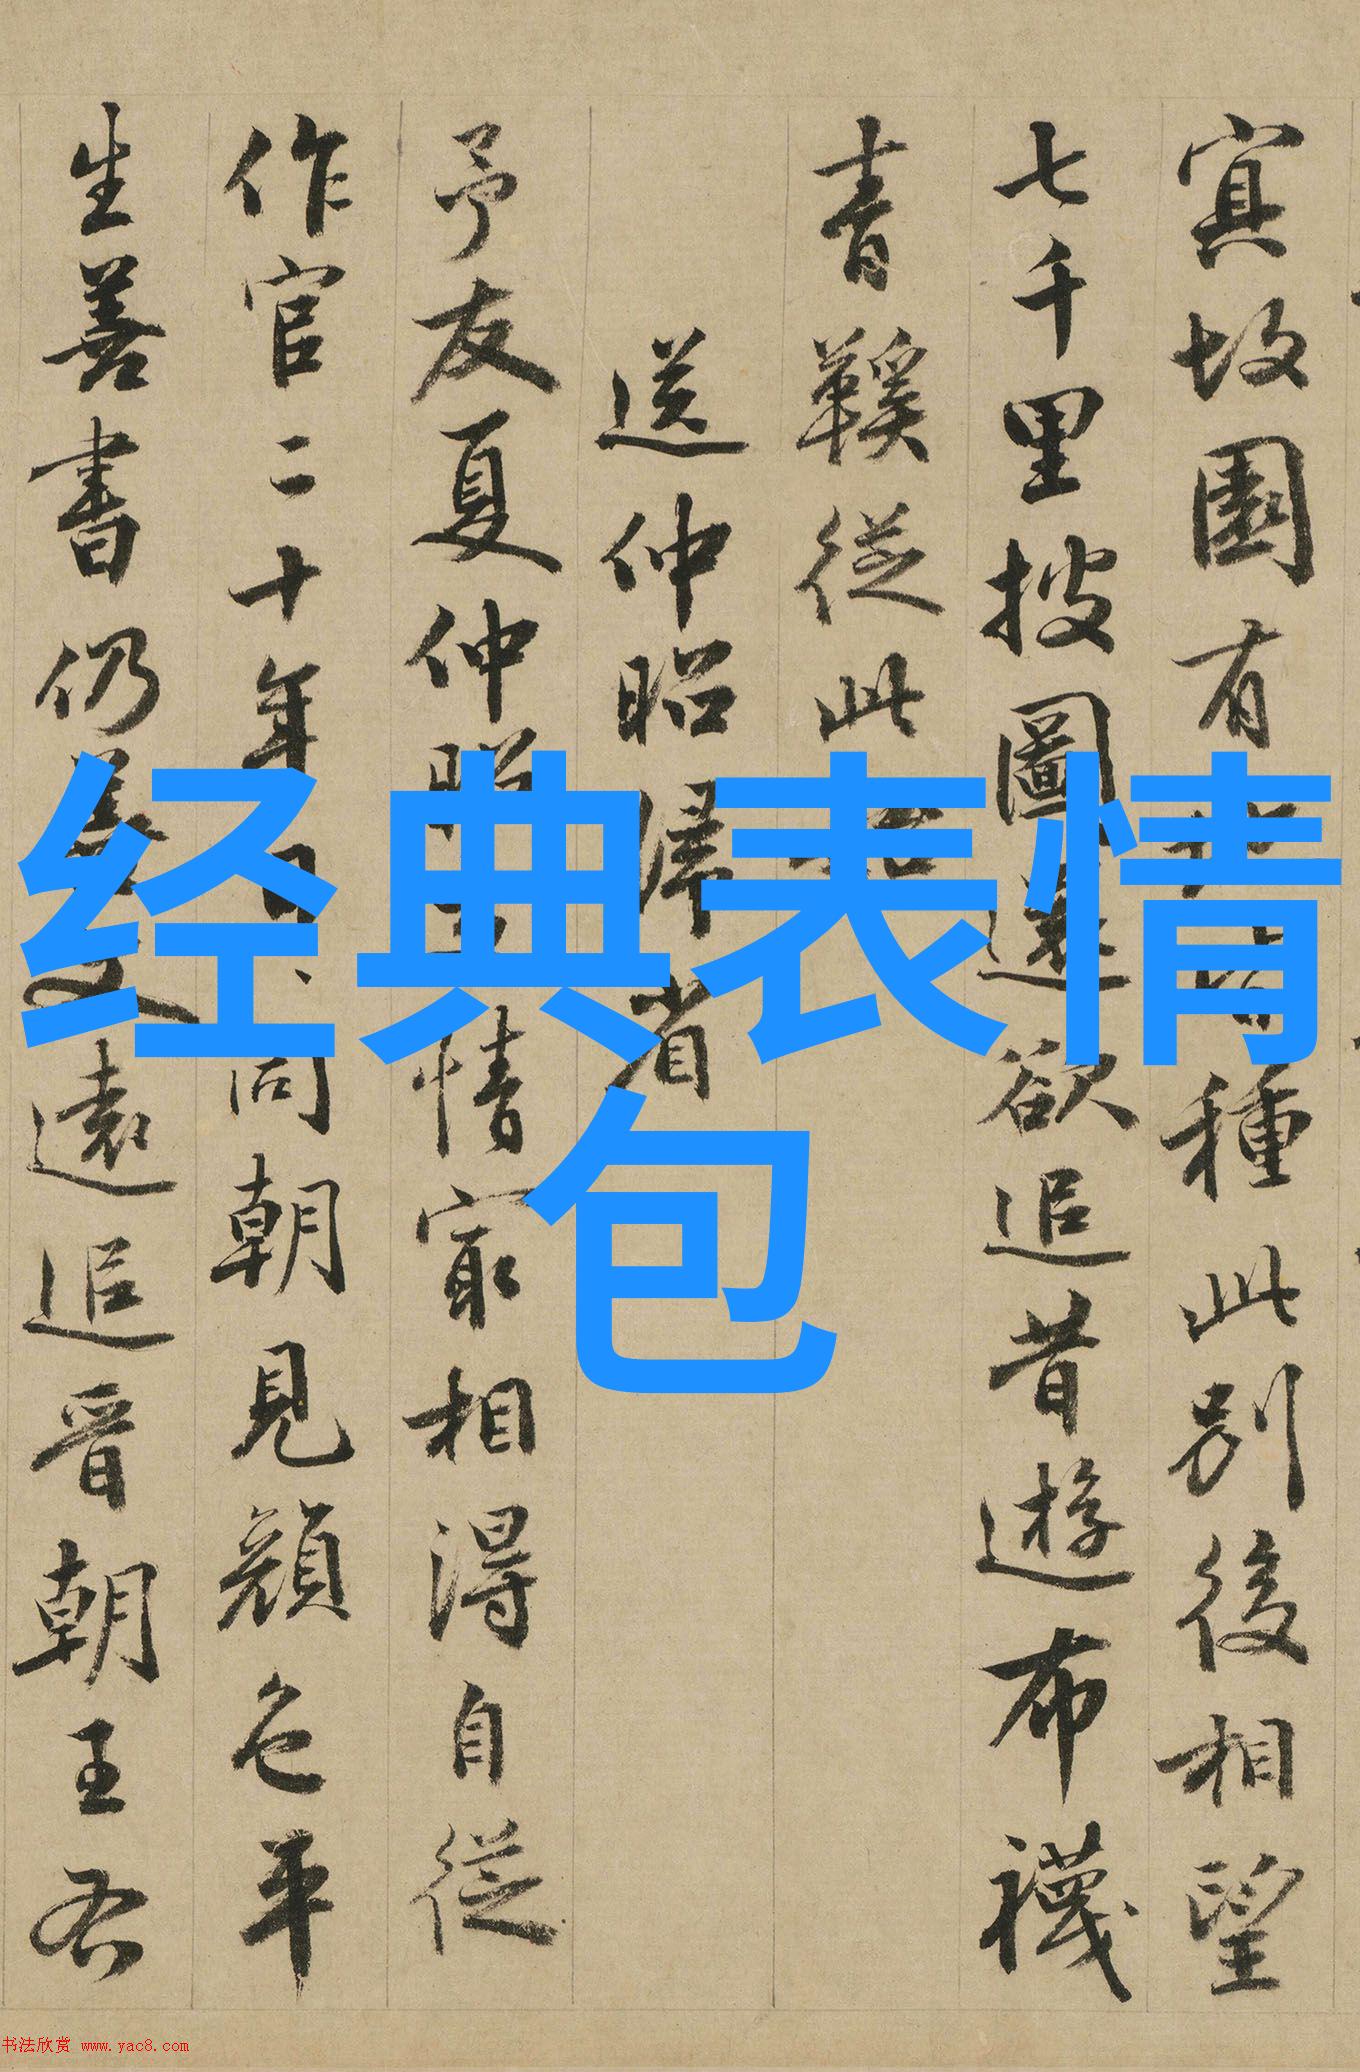 故園有種此別後相望
七千里披圖還欲追昔遊布襪
青鞵從此
送仲昭歸省
予友夏仲昭情㝡相得自從
作官二十年同朝見顏色平
生善書仍善文遠追晉朝王右
经典表情
包
书法欣赏 www.yac8.com